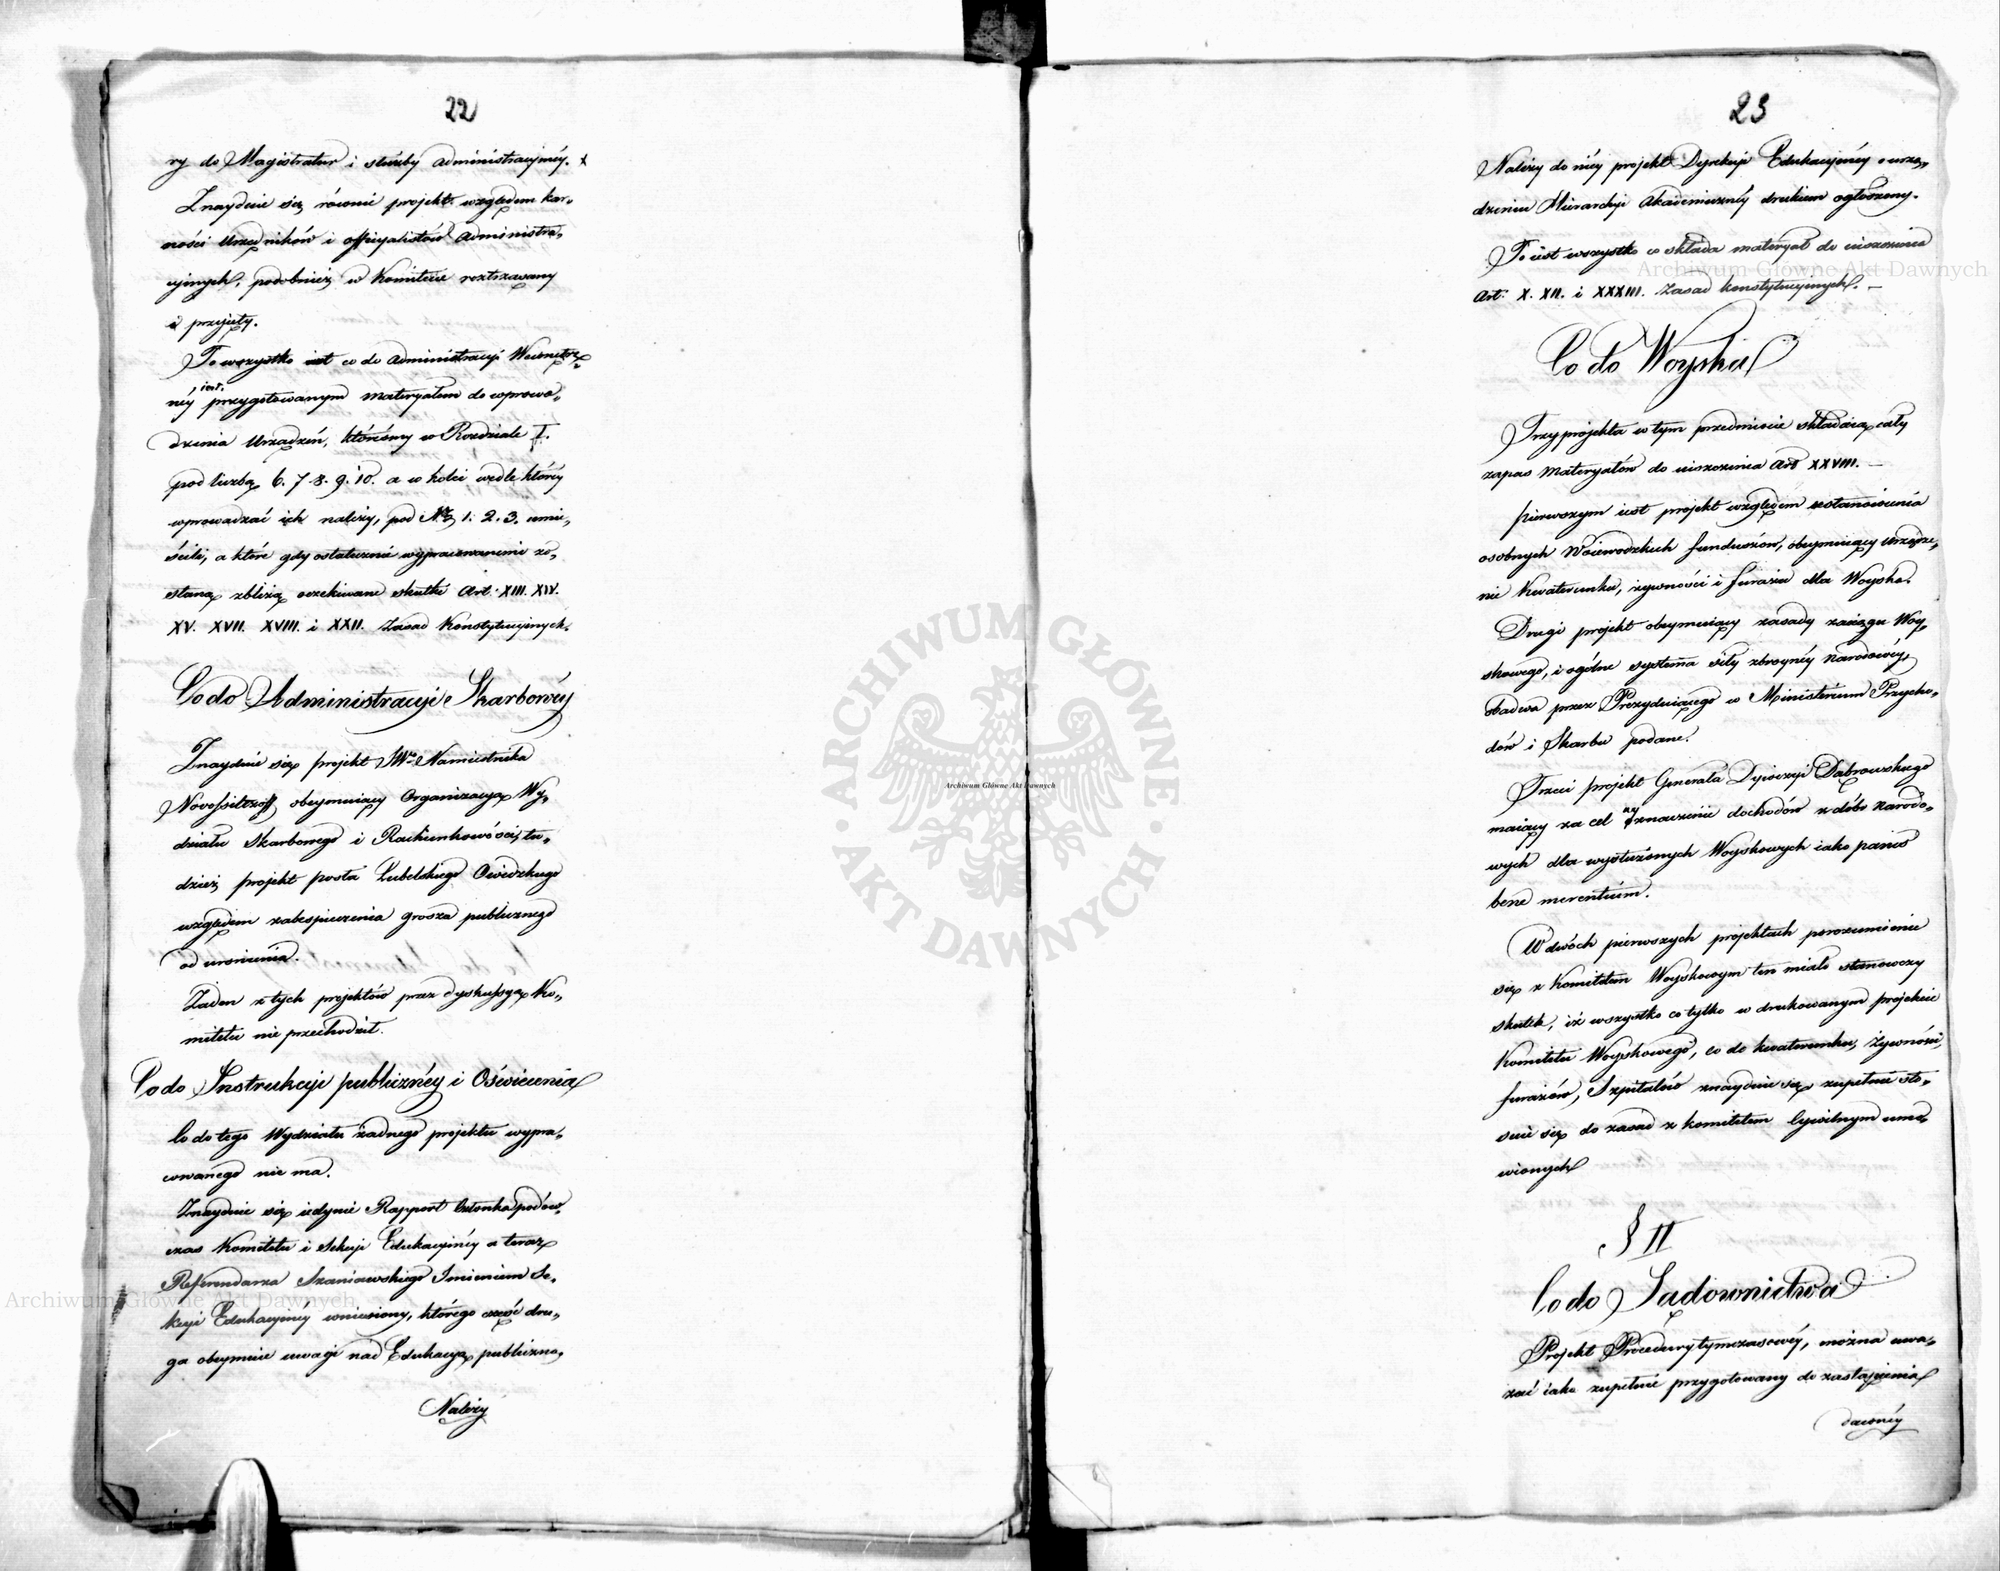 22
ry do Magistratur i służby administracyiney. x
Znayduie się równie projekt względem kar-
ności Urzędników i officyalistów administra-
cyinych, podobnież w Komitecie roztrząsany
i przyjęty.
To wszystko iest co do administracyi Wewnętrz-
néy iest przygotowanym materyałem do wprowa-
dzenia Urządzeń, któreśmy w Rozdziale I.
pod liczbą 6. 7. 8. 9. 10. a w kolei wedle któréy
wprowadzać ich należy, pod Nr 1. 2. 3. umie-
ścili, a które gdy ostatecznie wypracowanemi zo-
staną zbliżą oczekiwane skutki Art. XIII. XIV.
XV. XVII. XVIII. i XXII. Zasad Konstytucyinych.
Co do Administracyi Skarbowéy
Znayduie się projekt JW. Namiestnika
Novossilzoff obeymuiący Organizacyą Wy-
działu Skarbowego i Rachunkowości, tu-
dzież projekt posła Lubelskiego Owidzkiego
względem zabespieczenia grosza publicznego
od uronienia.
Żaden z tych projektów przez dyskussyą Ko-
mitetu nie przechodził.
Co do Instrukcyi publicznéy i Oświecenia
Co do tego Wydziału żadnego projektu wypra-
cowanego nie ma.
Znayduie się iedynie Rapport Członka podów-
czas Komitetu i Sekcyi Edukacyinéy a teraz
Referendarza Szaniawskiego Imieniem Se-
kcyi Edukacyinéy wniesiony, którego część dru-
ga obeymuie uwagi nad Edukacyą publiczną,
Należy
23
Należy do niéy projekt Dyrekcyi Edukacyinéy o urzą-
dzeniu Hierarchyi Akademicznéy drukiem ogłoszony.
To iest wszystko co składa materyał do uiszczenia
Art. X. XII. i XXXIII. Zasad konstytucyinych. —
Co do Woyska
Trzy projekta w tym przedmiocie składaią cały
zapas Materyałów do uiszczenia Art XXVIII. —
Pierwszym iest projekt względem ustanowienia
osobnych Woiewodzkich funduszów, obeymuiący urządze-
nie Kwaterunku, żywności i furażu dla Woyska.
Drugi projekt obeymuiący zasady zaciągu Woy-
skowego, i ogólne systema siły zbroynéy Narodowéy,
obadwa przez Prezyduiącego w Ministerium Przycho-
dów i Skarbu podane.
Trzeci projekt Generała Dywizyi Dąbrowskiego
maiący za cel wyznaczenie dochodów z dóbr Narodo-
wych dla wysłużonych Woyskowych iako panis
bene merentium.
W dwóch pierwszych projektach porozumienie
się z Komitetem Woyskowym ten miało stanowczy
skutek, iż wszystko co tylko w drukowanym projekcie
Komitetu Woyskowego, co do kwaterunku, Żywności,
furażów, Szpitalów znayduie się zupełnie sto-
suie się do zasad z komitetem Cywilnym umó-
wionych
§ II
Co do Sądownictwa
Projekt Procedury tymczasowéy, można uwa-
żać iako zupełnie przygotowany do zastąpienia
dawnéy
ARCHIWUM GŁÓWNE AKT DAWNYCH
Archiwum Główne Akt Dawnych
Archiwum Główne Akt Dawnych
Archiwum Główne Akt Dawnych